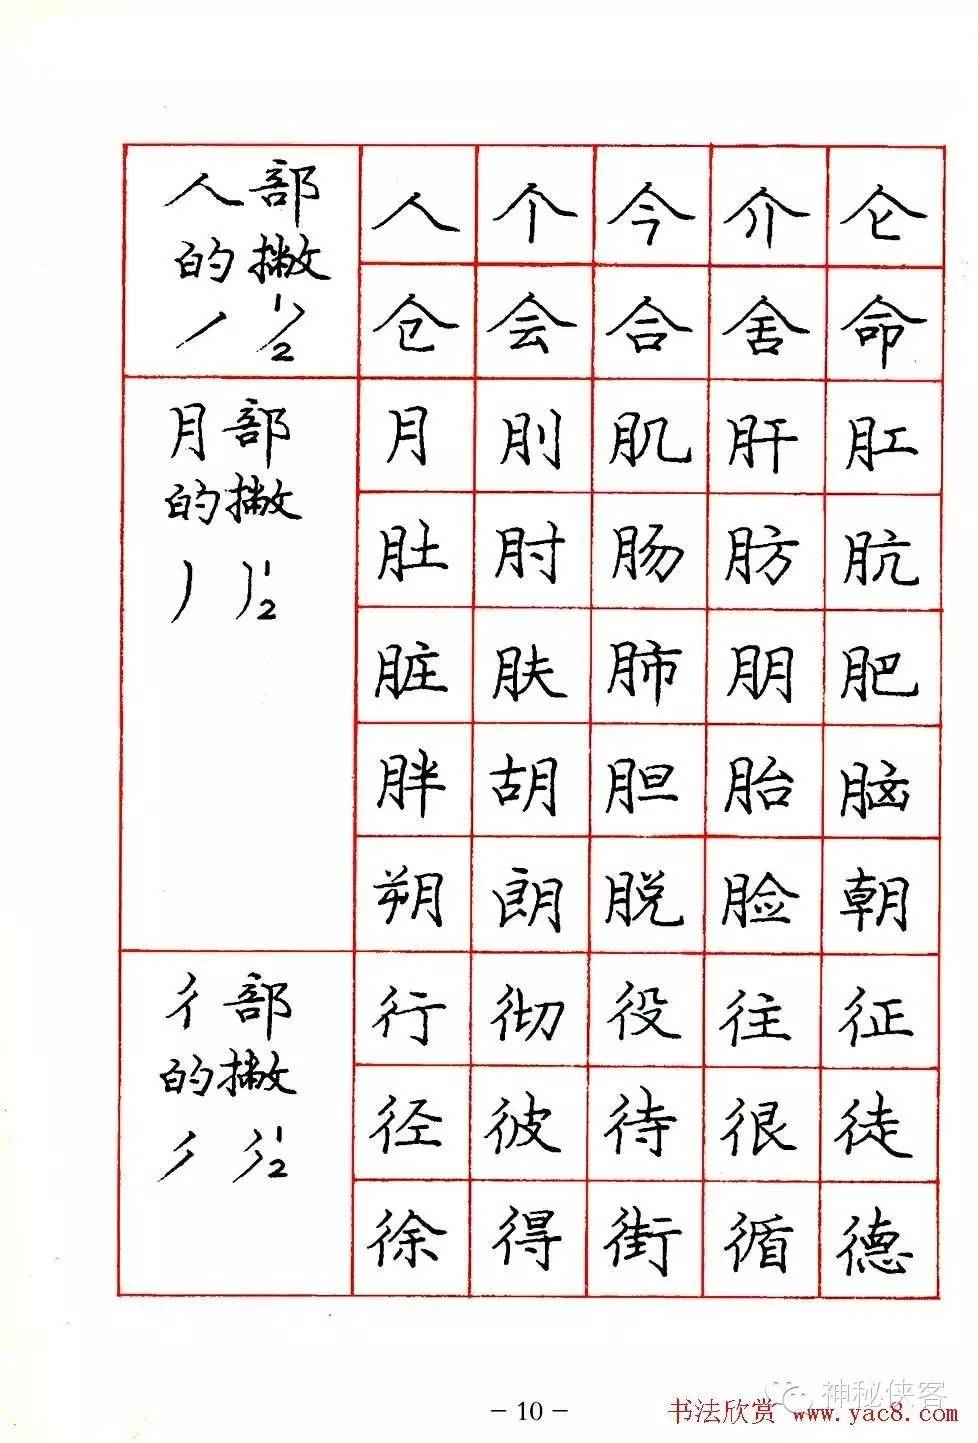 人部
的撇
人 个 今 介 仑
仓 会 合 舍 命
1
2
月部
的撇
月 刖 肌 肝 肛
肚 肘 肠 肪 肮
1
2
脏 肤 肺 朋 肥
胖 胡 胆 胎 脑
朔 朗 脱 脸 朝
彳部
的撇
行 彻 役 往 征
径 彼 待 很 徒
1
2
徐 得 街 循 德
神秘侠客
- 10 -
书法欣赏 www.yac8.com